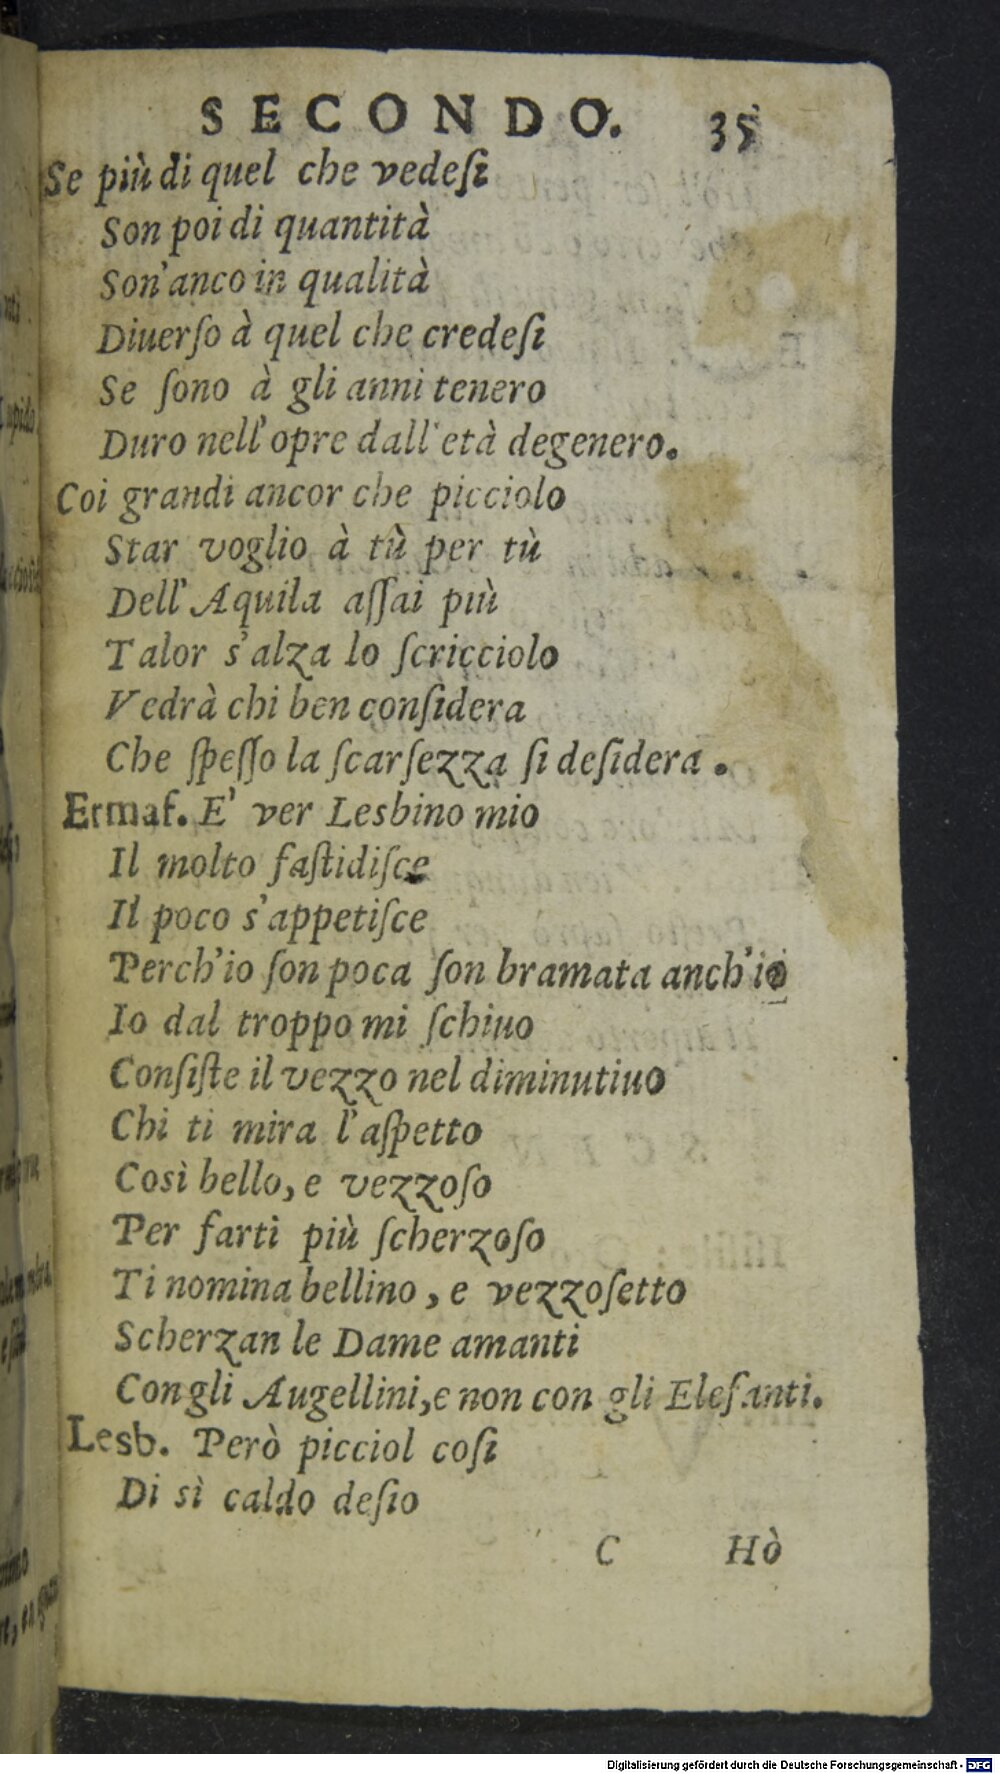 SECONDO. 35
Se più di quel che vedeſi
Son poi di quantità
Son'anco in qualità
Diuerſo à quel che credeſi
Se ſono à gli anni tenero
Duro nell'opre dall'età degenero.
Coi grandi ancor che picciolo
Star voglio à tù per tù
Dell'Aquila aſſai più
Talor s'alza lo ſcricciolo
Vedrà chi ben conſidera
Che ſpeſſo la ſcarſezza ſi deſidera.
Ermaf. E' ver Lesbino mio
Il molto faſtidiſce
Il poco s'appetiſce
Perch'io ſon poca ſon bramata anch'io
Io dal troppo mi ſchiuo
Conſiſte il vezzo nel diminutiuo
Chi ti mira l'aſpetto
Così bello, e vezzoſo
Per farti più ſcherzoſo
Ti nomina bellino, e vezzoſetto
Scherzan le Dame amanti
Con gli Augellini, e non con gli Elefanti.
Lesb. Però picciol coſi
Di sì caldo deſio
C Hò
Digitalisierung gefördert durch die Deutsche Forschungsgemeinschaft - DFG